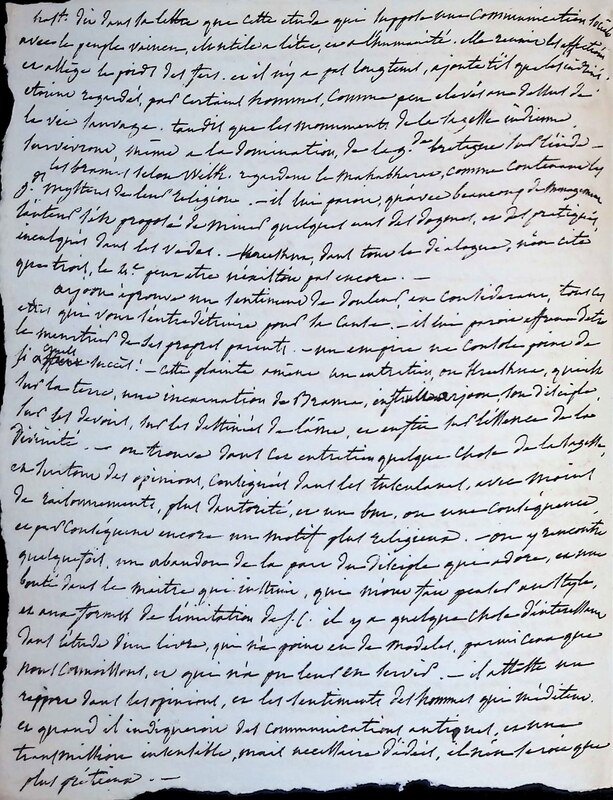 hast. dit dans sa lettre que cette etude qui suppose une Communication sociale
avec le peuple vaincu, est utile a l'etat, et a l'humanité. elle reunit les affections
et allège le poids des fers. et il n'y a pas longtems, ajoute t'il que les indiens
etoient regardés, par certains hommes, Comme peu elevés au dessus de
la vie sauvage. tandis que les monuments de la sagesse indienne
survivront, même a la domination, de la g.de bretagne sur l'inde —
les brames selon Wilk. regardent le Mahabharat, comme contenant les
g.ds mysteres de leur religion. — il lui paroit, qu'avec beaucoup de menagement
l'auteur s'est proposé de miner quelques uns des dogmes, et des pratiques,
inculqués dans les vedas. — Kreeshna, dans tout le dialogue, n'en cite
que trois, le 4.e peut etre n'existoit pas encore. —
arjoon éprouve un sentiment de douleur, en considerant, tous ces
etres que vont s'entredétruire pour sa cause. — il lui paroit affreux d'etre
le meurtrier de ses propres parents. — un empire ne console point de
si cruels succès! — cette plainte amène un entretien, ou Kreeshna, qui est
sur la terre, une incarnation de Brama, instruit arjoon son disciple,
sur les devoirs, sur les destinées de l'âme, et enfin sur l'essence de la
divinité. — on trouve dans cet entretien quelque chose de la sagesse,
et surtout des opinions, consignées dans les tusculanes, avec moins
de raisonnements, plus d'autorité, et un but, ou une conséquence,
et par conséquent encore un motif plus religieux. — on y rencontre
quelquefois, un abandon de la part du disciple qui adore, et une
bonté dans le maitre qui instruit, que m'ont fait penser au style,
et aux formes de l'imitation de J. C. il y a quelque chose d'interessant
dans l'étude d'un livre, qui n'a point eu de modeles, parmi ceux que
nous connoissons, et que n'a pu leur en servir. — il atteste un
rapport dans les opinions, et les sentiments des hommes qui méditent.
et quand il indiqueroit des communications antiques, et une
transmission insensible, mais necessaire d'idées, il n'en seroit que
plus précieux. —